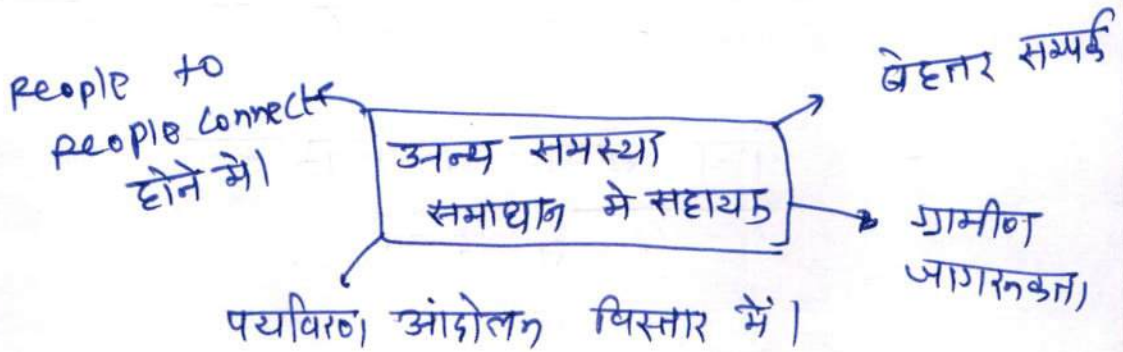 People to
people connect
होने मे।
अन्य समस्या
समाधान मे सहायक
बेहतर सम्पर्क
ग्रामीण
जागरूकता
पर्यावरण आंदोलन विस्तार में।